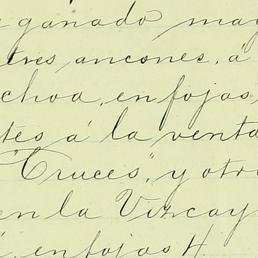 ganado may
tres ancones, á
choa, en fojas
tes á la venta
"Cruces", y otro
en la Vizcay
en fojas 4